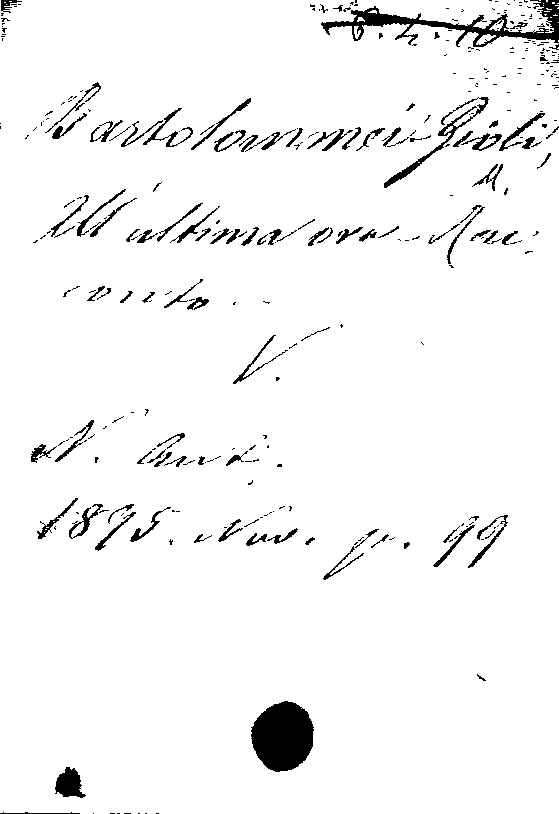 6.4.10
Bartolommei-Gioli,
M.
All'ultima ora - Rac-
conto. -
V.
N. Ant.
1895. Nov. p. 99